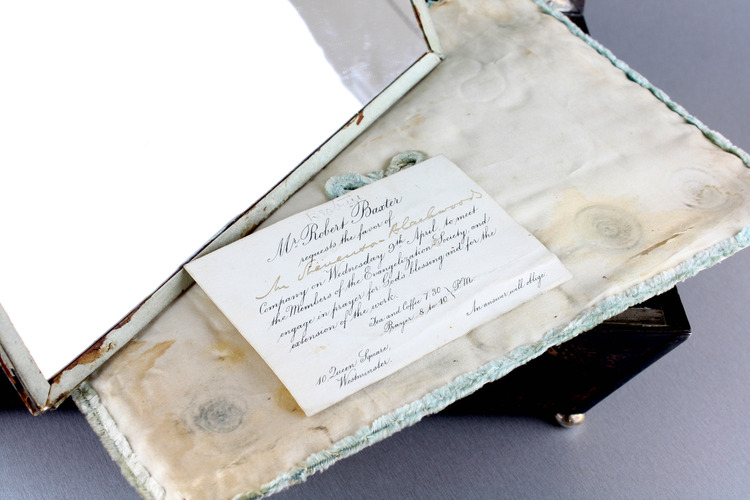 Mr. Robert Baxter
requests the favor of
Mr Stevenson Blackwoods
Company on Wednesday 9th April, to meet
the Members of the Evangelization Society, and
engage in prayer for God's blessing and for the
extension of the work.
Tea and Coffee 7.30 } P.M.
Prayer, 8 to 10
An answer will oblige.
10. Queen Square,
Westminster.